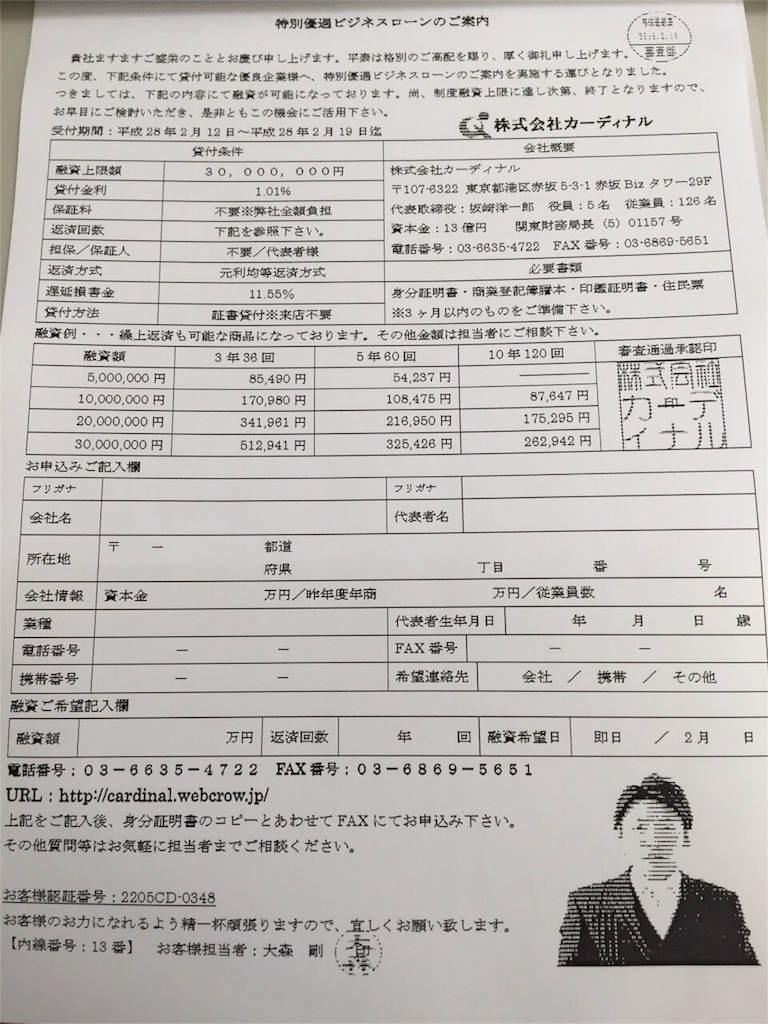 特別優遇ビジネスローンのご案内
審査部
貴社ますますご盛栄のこととお慶び申し上げます。平素は格別のご高配を賜り、厚く御礼申し上げます。
この度、下記条件にて貸付可能な優良企業様へ、特別優遇ビジネスローンのご案内を実施する運びとなりました。
つきましては、下記の内容にて融資が可能になっております。尚、制度融資上限に達し次第、終了となりますので、
お早目にご検討いただき、是非ともこの機会にご活用下さい。
受付期間：平成28年2月12日～平成28年2月19日迄
株式会社カーディナル
貸付条件
融資上限額 30，000，000円
貸付金利 1.01%
保証料 不要※弊社全額負担
返済回数 下記を参照下さい。
担保／保証人 不要／代表者様
返済方式 元利均等返済方式
遅延損害金 11.55%
貸付方法 証書貸付※来店不要
会社概要
株式会社カーディナル
〒107-6322 東京都港区赤坂5-3-1赤坂Bizタワー29F
代表取締役：坂崎洋一郎 役員：5名 従業員：126名
資本金：13億円 関東財務局長（5）01157号
電話番号：03-6635-4722 FAX番号：03-6869-5651
必要書類
身分証明書・商業登記簿謄本・印鑑証明書・住民票
※3ヶ月以内のものをご準備下さい。
融資例・・・繰上返済も可能な商品になっております。その他金額は担当者にご相談下さい。
融資額 3年36回 5年60回 10年120回 審査通過承認印
5,000,000円 85,490円 54,237円 ―――
10,000,000円 170,980円 108,475円 87,647円
20,000,000円 341,961円 216,950円 175,295円
30,000,000円 512,941円 325,426円 262,942円
株式会社
カーデ
ィナル
印
お申込みご記入欄
フリガナ フリガナ
会社名 代表者名
所在地 〒 － 都道
府県 丁目 番 号
会社情報 資本金 万円／昨年度年商 万円／従業員数 名
業種 代表者生年月日 年 月 日 歳
電話番号 － － FAX番号 － －
携帯番号 － － 希望連絡先 会社 ／ 携帯 ／ その他
融資ご希望記入欄
融資額 万円 返済回数 年 回 融資希望日 即日 ／ 2月 日
電話番号：03－6635－4722 FAX番号：03－6869－5651
URL：http://cardinal.webcrow.jp/
上記をご記入後、身分証明書のコピーとあわせてFAXにてお申込み下さい。
その他質問等はお気軽に担当者までご相談ください。
お客様認証番号：2205CD-0348
お客様のお力になれるよう精一杯頑張りますので、宜しくお願い致します。
【内線番号：13番】 お客様担当者：大森 剛 印